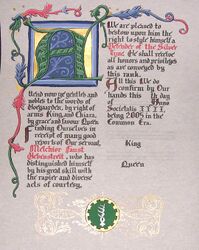 We are pleased to
bestow upon him the
right to style himself a
Defender of the Silver
Tyne. He shall receive
all honors and privileges
as are conveyed by
this rank.
All this We do
Confirm by Our
hands this day
of Anno
Societatis IIII,
being 2005 in the
Common Era.
Attend now ye gentles and
nobles to the words of
by right of
arms King, and Chiara,
by grace and favour Queen.
Finding Ourselves in
receipt of many good
reports of Our servant,
Melchior Faust
who has
distinguished himself
by his great skill with
the rapier and diverse
acts of courtesy,
King
Queen